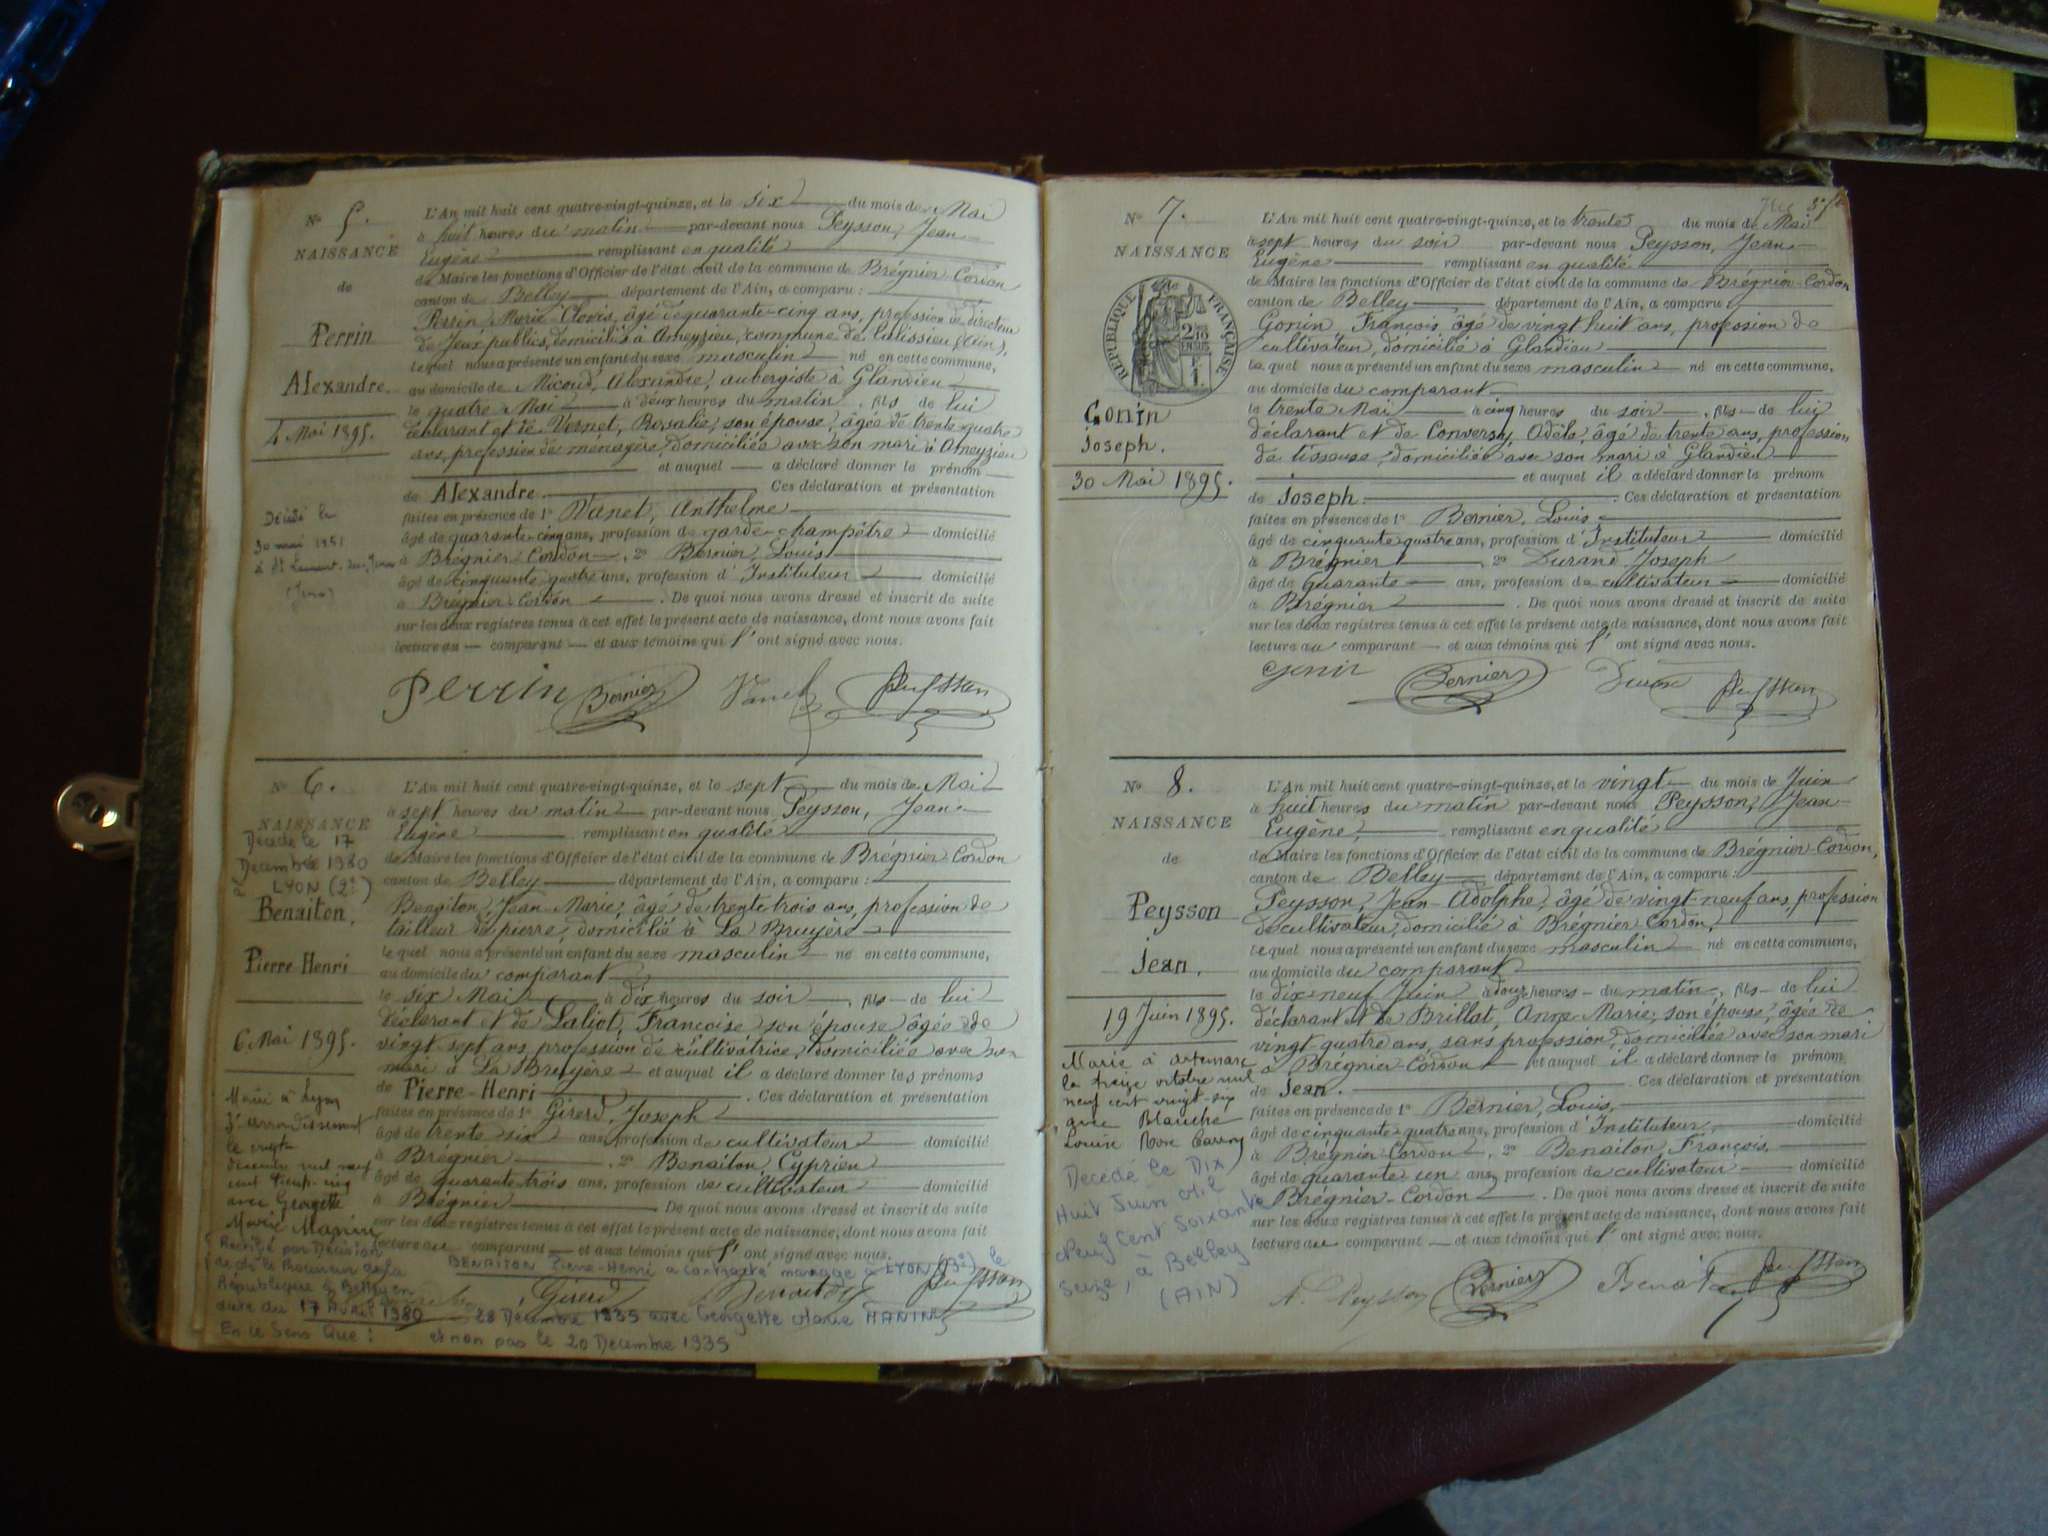 Nº 5.
NAISSANCE
de
Perrin
Alexandre.
4 Mai 1895.
Décédé le
30 mai 1951
à St Laurent
(Jura)
L'An mil huit cent quatre-vingt-quinze, et le six du mois de Mai
à huit heures du matin par-devant nous Peysson, Jean
Eugène remplissant en qualité
de Maire les fonctions d'Officier de l'état civil de la commune de Brégnier-Cordon
canton de Belley département de l'Ain, a comparu :
Perrin Marie Clovis, âgé de quarante-cinq ans, profession de directeur
de Jeux publics, domicilié à Ameyzieu, commune de Talissieu (Ain),
lequel nous a présenté un enfant du sexe masculin né en cette commune,
au domicile de Micoud, Alexandre, aubergiste à Glandieu
le quatre Mai à deux heures du matin, fils de lui
déclarant et de Vernet, Rosalie, son épouse, âgée de trente-quatre
ans, profession de ménagère, domiciliée avec son mari à Ameyzieu
et auquel a déclaré donner le prénom
de Alexandre. Ces déclaration et présentation
faites en présence de 1º Vanet, Anthelme
âgé de quarante-cinq ans, profession de garde-champêtre domicilié
à Brégnier-Cordon, 2º Bernier Louis
âgé de cinquante-quatre ans, profession d'Instituteur domicilié
à Brégnier-Cordon. De quoi nous avons dressé et inscrit de suite
sur les deux registres tenus à cet effet le présent acte de naissance, dont nous avons fait
lecture au comparant et aux témoins qui l'ont signé avec nous.
Perrin Bernier Vanet Peysson
Nº 6.
NAISSANCE
Décédé le 17
Décembre 1980
LYON (2e)
Benaiton,
Pierre-Henri
6 Mai 1895.
Marié à Lyon
3e arrondissement
le vingt
décembre mil neuf
cent trente-cinq
avec Georgette
Marie Manin
L'An mil huit cent quatre-vingt-quinze, et le sept du mois de Mai
à sept heures du matin par-devant nous Peysson, Jean
Eugène remplissant en qualité
de Maire les fonctions d'Officier de l'état civil de la commune de Brégnier-Cordon
canton de Belley département de l'Ain, a comparu :
Benaiton, Jean-Marie, âgé de trente trois ans, profession de
tailleur de pierre, domicilié à La Bruyère
lequel nous a présenté un enfant du sexe masculin né en cette commune,
au domicile du comparant
le six Mai à dix heures du soir, fils de lui
déclarant et de Laliot, Françoise son épouse âgée de
vingt sept ans, profession de cultivatrice, domiciliée avec son
mari à La Bruyère et auquel il a déclaré donner les prénoms
de Pierre-Henri. Ces déclaration et présentation
faites en présence de 1º Girerd, Joseph
âgé de trente six ans, profession de cultivateur domicilié
à Brégnier, 2º Benaiton, Cyprien
âgé de quarante trois ans, profession de cultivateur domicilié
à Brégnier De quoi nous avons dressé et inscrit de suite
sur les deux registres tenus à cet effet le présent acte de naissance, dont nous avons fait
lecture au comparant et aux témoins qui l'ont signé avec nous.
Rectifié par Décision
de Mr le Procureur de la
République de Belley en
date du 17 Avril 1980
En ce Sens Que :
BENAITON Pierre-Henri a contracté mariage à LYON (3e) le
28 Décembre 1935 avec Georgette Marie MANIN
et non pas le 20 Décembre 1935
Girerd Benaiton Peysson
Nº 7.
NAISSANCE
RÉPUBLIQUE FRANÇAISE
2/10 EN SUS
Gonin
Joseph.
30 Mai 1895.
L'An mil huit cent quatre-vingt-quinze, et le trente du mois de Mai
à sept heures du soir par-devant nous Peysson, Jean
Eugène remplissant en qualité
de Maire les fonctions d'Officier de l'état civil de la commune de Brégnier-Cordon
canton de Belley département de l'Ain, a comparu
Gonin, François, âgé de vingt huit ans, profession de
cultivateur, domicilié à Glandieu
lequel nous a présenté un enfant du sexe masculin né en cette commune,
au domicile du comparant
le trente Mai à cinq heures du soir, fils de lui
déclarant et de Conversy, Adèle, âgé de trente ans, profession
de tisseuse, domiciliée avec son mari à Glandieu
et auquel il a déclaré donner le prénom
de Joseph. Ces déclaration et présentation
faites en présence de 1º Bernier, Louis
âgé de cinquante quatre ans, profession d'Instituteur domicilié
à Brégnier, 2º Durand Joseph
âgé de Quarante ans, profession de cultivateur domicilié
à Brégnier. De quoi nous avons dressé et inscrit de suite
sur les deux registres tenus à cet effet le présent acte de naissance, dont nous avons fait
lecture au comparant et aux témoins qui l'ont signé avec nous.
Gonin Bernier Durand Peysson
Nº 8.
NAISSANCE
de
Peysson
Jean.
19 Juin 1895.
Marié à Artemare
le treize octobre mil
neuf cent vingt-six
avec Blanche
Louise
Décédé le Dix
Huit Juin Mil
Neuf Cent Soixante
Seize, à Belley
(AIN)
L'An mil huit cent quatre-vingt-quinze, et le vingt du mois de Juin
à huit heures du matin par-devant nous Peysson, Jean
Eugène, remplissant en qualité
de Maire les fonctions d'Officier de l'état civil de la commune de Brégnier-Cordon,
canton de Belley département de l'Ain, a comparu :
Peysson, Jean-Adolphe, âgé de vingt-neuf ans, profession
de cultivateur, domicilié à Brégnier-Cordon,
lequel nous a présenté un enfant du sexe masculin né en cette commune,
au domicile du comparant
le dix-neuf Juin à douze heures du matin, fils de lui
déclarant et de Brillat, Anne-Marie, son épouse, âgée de
vingt quatre ans, sans profession, domiciliée avec son mari
à Brégnier Cordon et auquel il a déclaré donner le prénom
de Jean. Ces déclaration et présentation
faites en présence de 1º Bernier, Louis,
âgé de cinquante quatre ans, profession d'Instituteur, domicilié
à Brégnier Cordon, 2º Benaiton, François,
âgé de quarante un ans, profession de cultivateur domicilié
à Brégnier-Cordon. De quoi nous avons dressé et inscrit de suite
sur les deux registres tenus à cet effet le présent acte de naissance, dont nous avons fait
lecture au comparant et aux témoins qui l'ont signé avec nous.
A. Peysson Bernier Benaiton Peysson